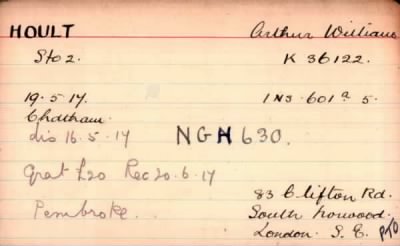 HOULT Arthur William
Sto 2. K 36122.
19.5.17. INJ. 601ᵃ 5.
Chatham.
dis 16.5.17 NGH 630.
Grat £20 Rec 20.6.17
83 Clifton Rd.
Pembroke. South Norwood.
London. S.E. PTO